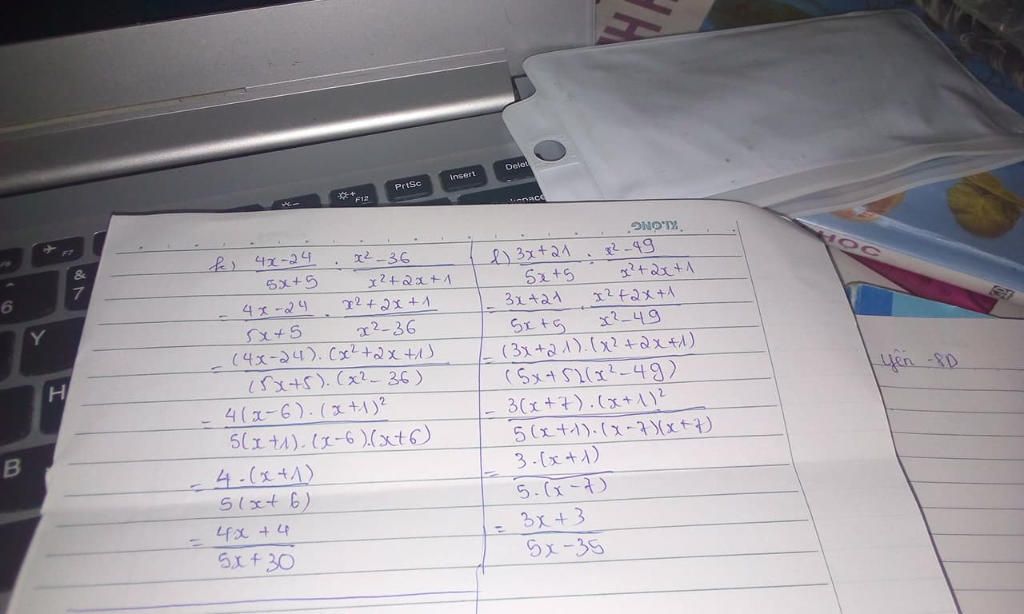 PrtSc
Insert
Delet
F12
F7
&
7
6
Y
H
B
KLONG
HỌC
Yến - 8D
k) \frac{4x-24}{5x+5} : \frac{x²-36}{x²+2x+1}
= \frac{4x-24}{5x+5} . \frac{x²+2x+1}{x²-36}
= \frac{(4x-24).(x²+2x+1)}{(5x+5).(x²-36)}
= \frac{4(x-6).(x+1)²}{5(x+1).(x-6).(x+6)}
= \frac{4.(x+1)}{5(x+6)}
= \frac{4x+4}{5x+30}
l) \frac{3x+21}{5x+5} : \frac{x²-49}{x²+2x+1}
= \frac{3x+21}{5x+5} . \frac{x²+2x+1}{x²-49}
= \frac{(3x+21).(x²+2x+1)}{(5x+5)(x²-49)}
= \frac{3(x+7).(x+1)²}{5(x+1).(x-7)(x+7)}
= \frac{3.(x+1)}{5.(x-7)}
= \frac{3x+3}{5x-35}